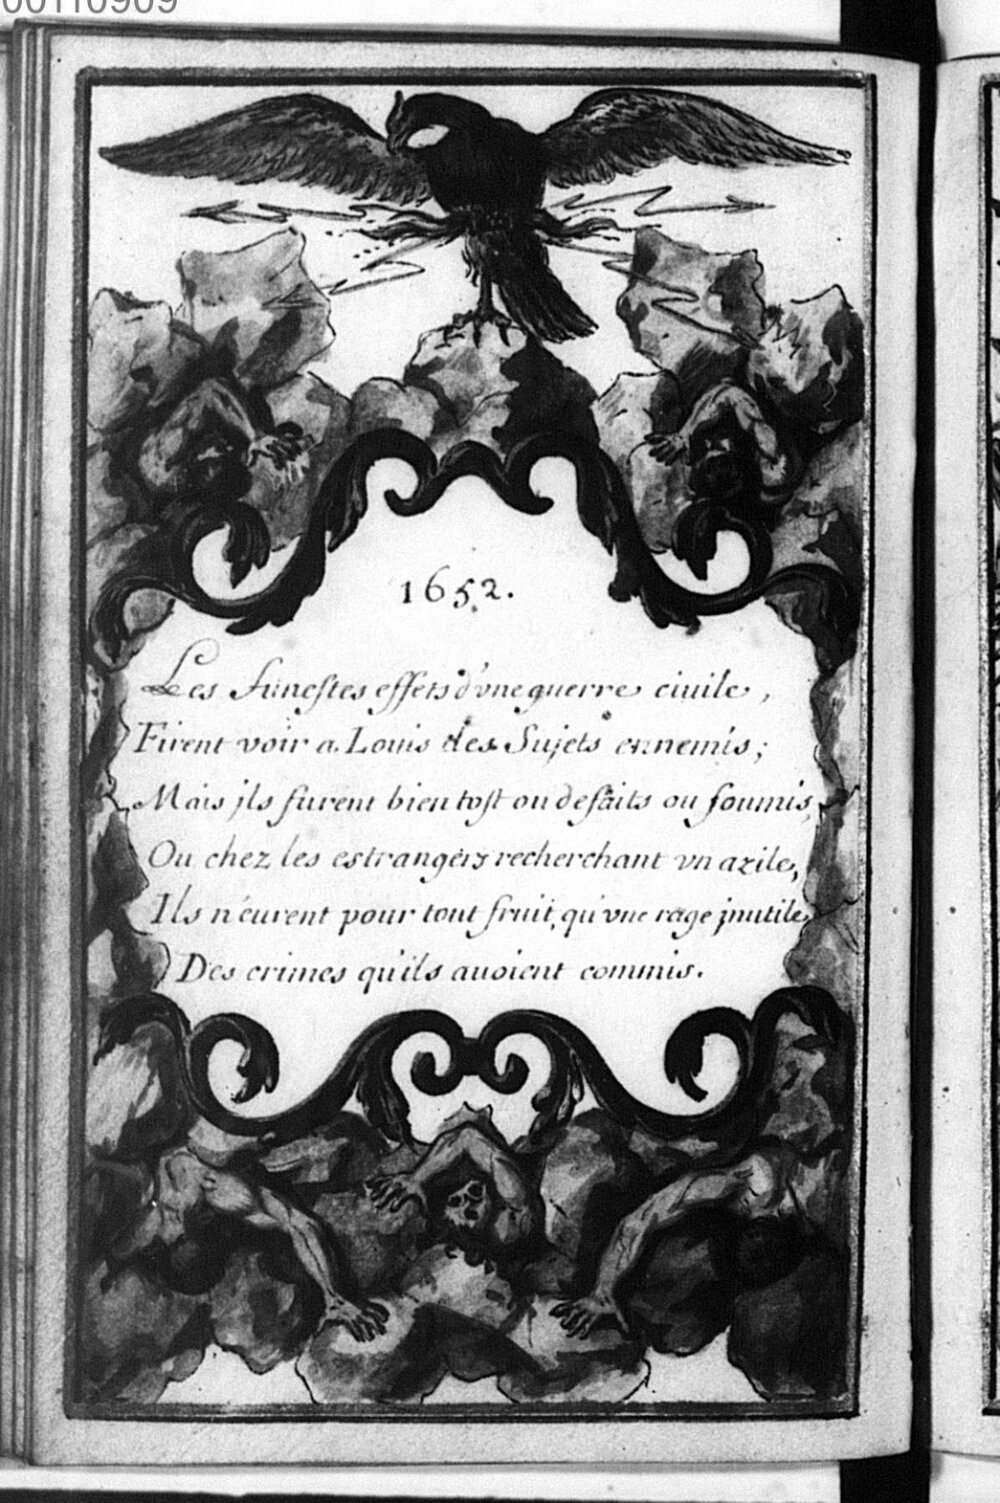 00110909
1652.
Les funestes effets d'vne guerre ciuile,
Firent voir a Louis des Sujets ennemis;
Mais jls furent bien tost ou defaits ou soumis,
Ou chez les estrangers recherchant vn azile,
Ils n'eurent pour tout fruit, qu'vne rage jnutile
Des crimes qu'ils auoient commis.